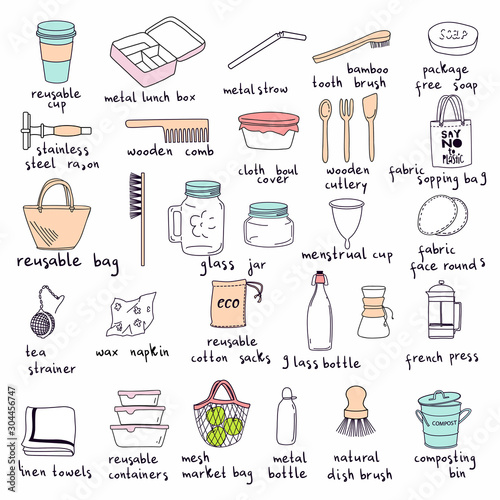 SOAP
reusable
cup
metal lunch box
metal straw
bamboo
tooth brush
package
free soap
stainless
steel razon
wooden comb
cloth boul
cover
wooden
cutlery
SAY
NO
to
PLASTIC
fabric
sopping bag
reusable bag
glass jar
menstrual cup
fabric
face rounds
eco
tea
strainer
wax napkin
reusable
cotton sacks
glass bottle
french press
COMPOST
linen towels
reusable
containers
mesh
market bag
metal
bottle
natural
dish brush
composting
bin
Adobe Stock | #304456747